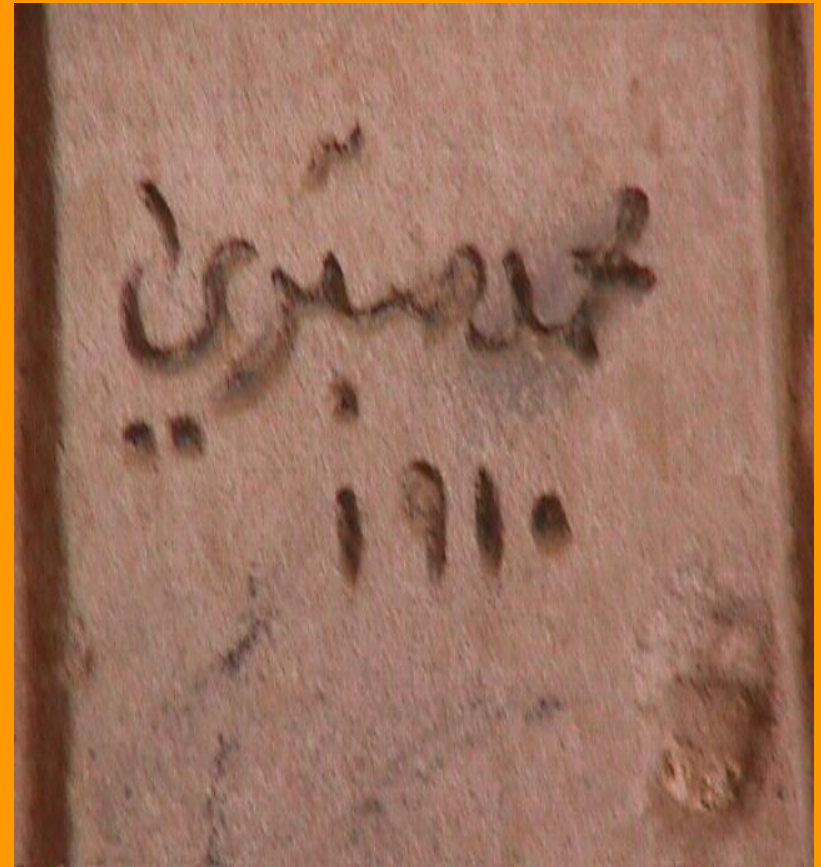 محمد صبري
١٩١٠